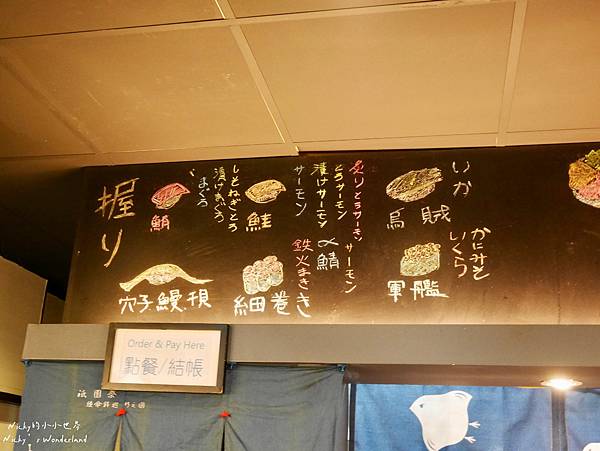 握り
鮪
まぐろ
漬けまぐろ
しそねぎとろ
鮭
サーモン
漬けサーモン
とろサーモン
炙りとろサーモン
烏賊
いか
穴子鰻
細巻き
鉄火まき
〆鯖
サーモン
軍艦
いくら
かにみそ
Order & Pay Here
點餐/結帳
祇園祭
Nicky的小小世界
Nicky's Wonderland